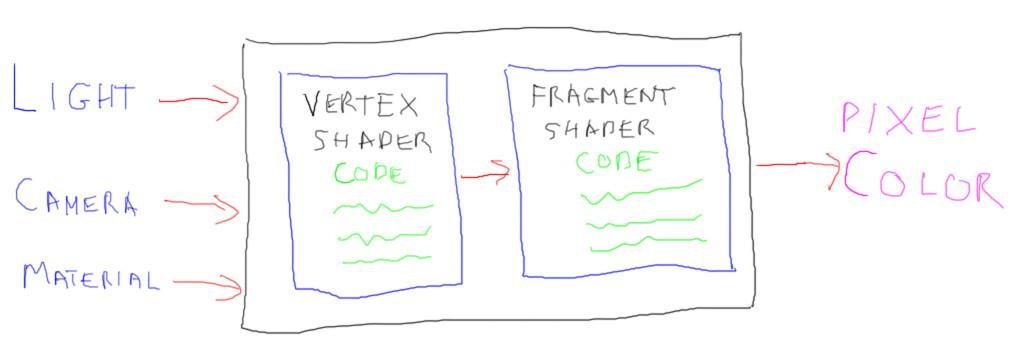 LIGHT
CAMERA
MATERIAL
VERTEX
SHADER
CODE
FRAGMENT
SHADER
CODE
PIXEL
COLOR